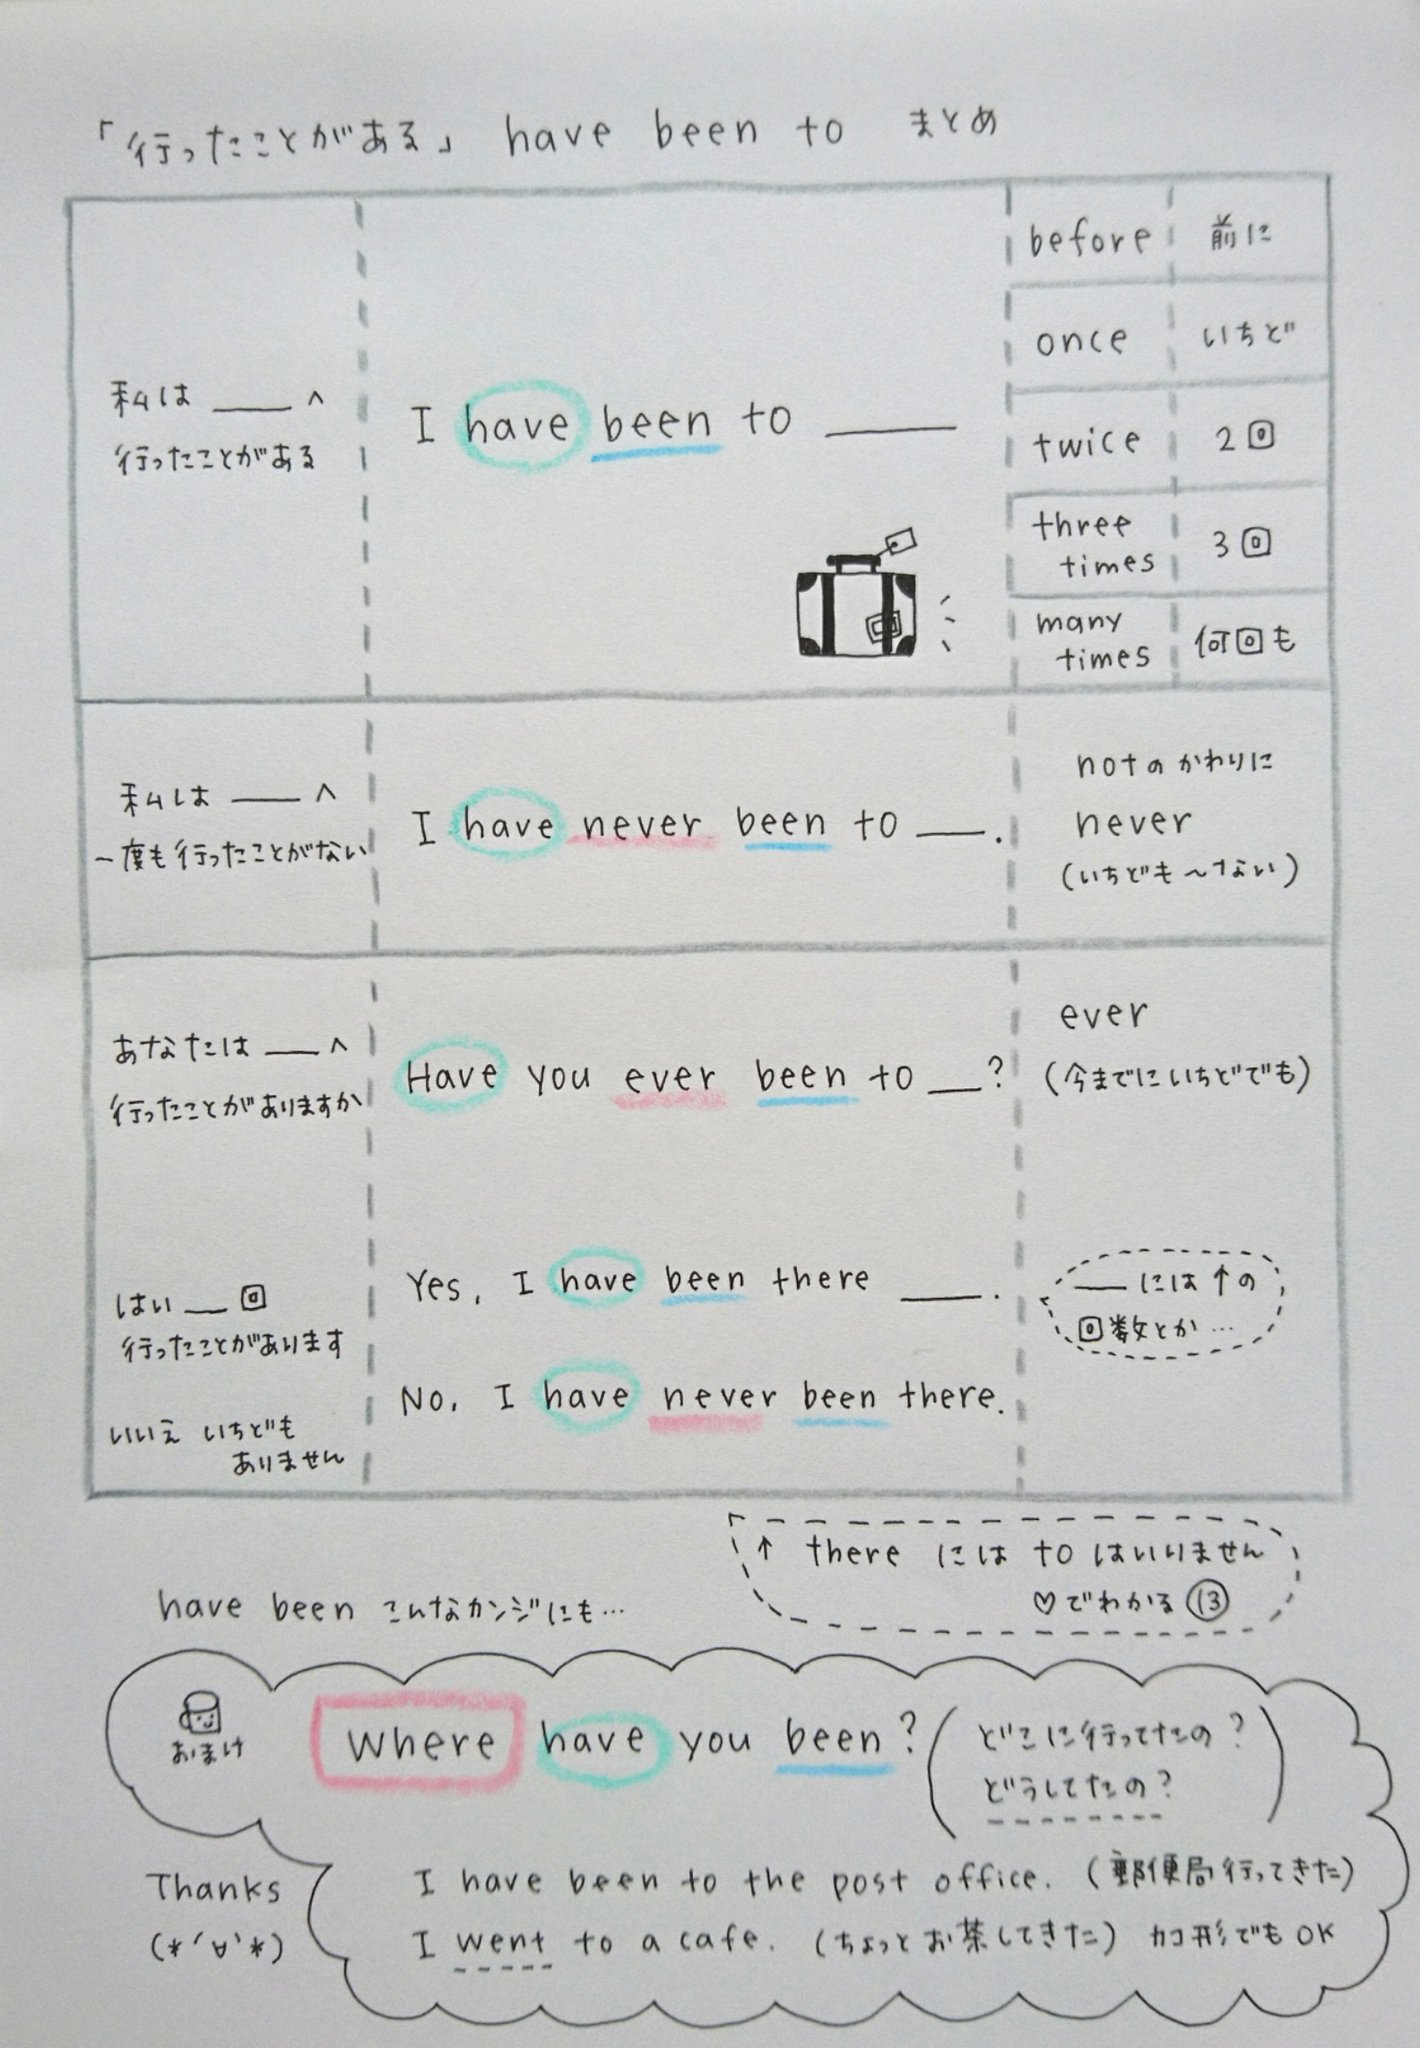 「行ったことがある」 have been to まとめ
私は ___ へ
行ったことがある
I have been to ___
before 前に
once いちど
twice 2回
three times 3回
many times 何回も
私は ___ へ
一度も行ったことがない
I have never been to ___.
notのかわりに
never
(いちども〜ない)
あなたは ___ へ
行ったことがありますか
Have you ever been to ___?
ever
(今までにいちどでも)
はい ___ 回
行ったことがあります
Yes, I have been there ___.
___ には↑の
回数とか…
いいえ いちども
ありません
No, I have never been there.
↑ there には to はいりません
♡でわかる ⑬
have been こんなカンジにも…
おまけ
Where have you been?
(どこに行ってたの?
どうしてたの?)
I have been to the post office. (郵便局行ってきた)
I went to a cafe. (ちょっとお茶してきた) カコ形でもOK
Thanks
(*´∀`*)